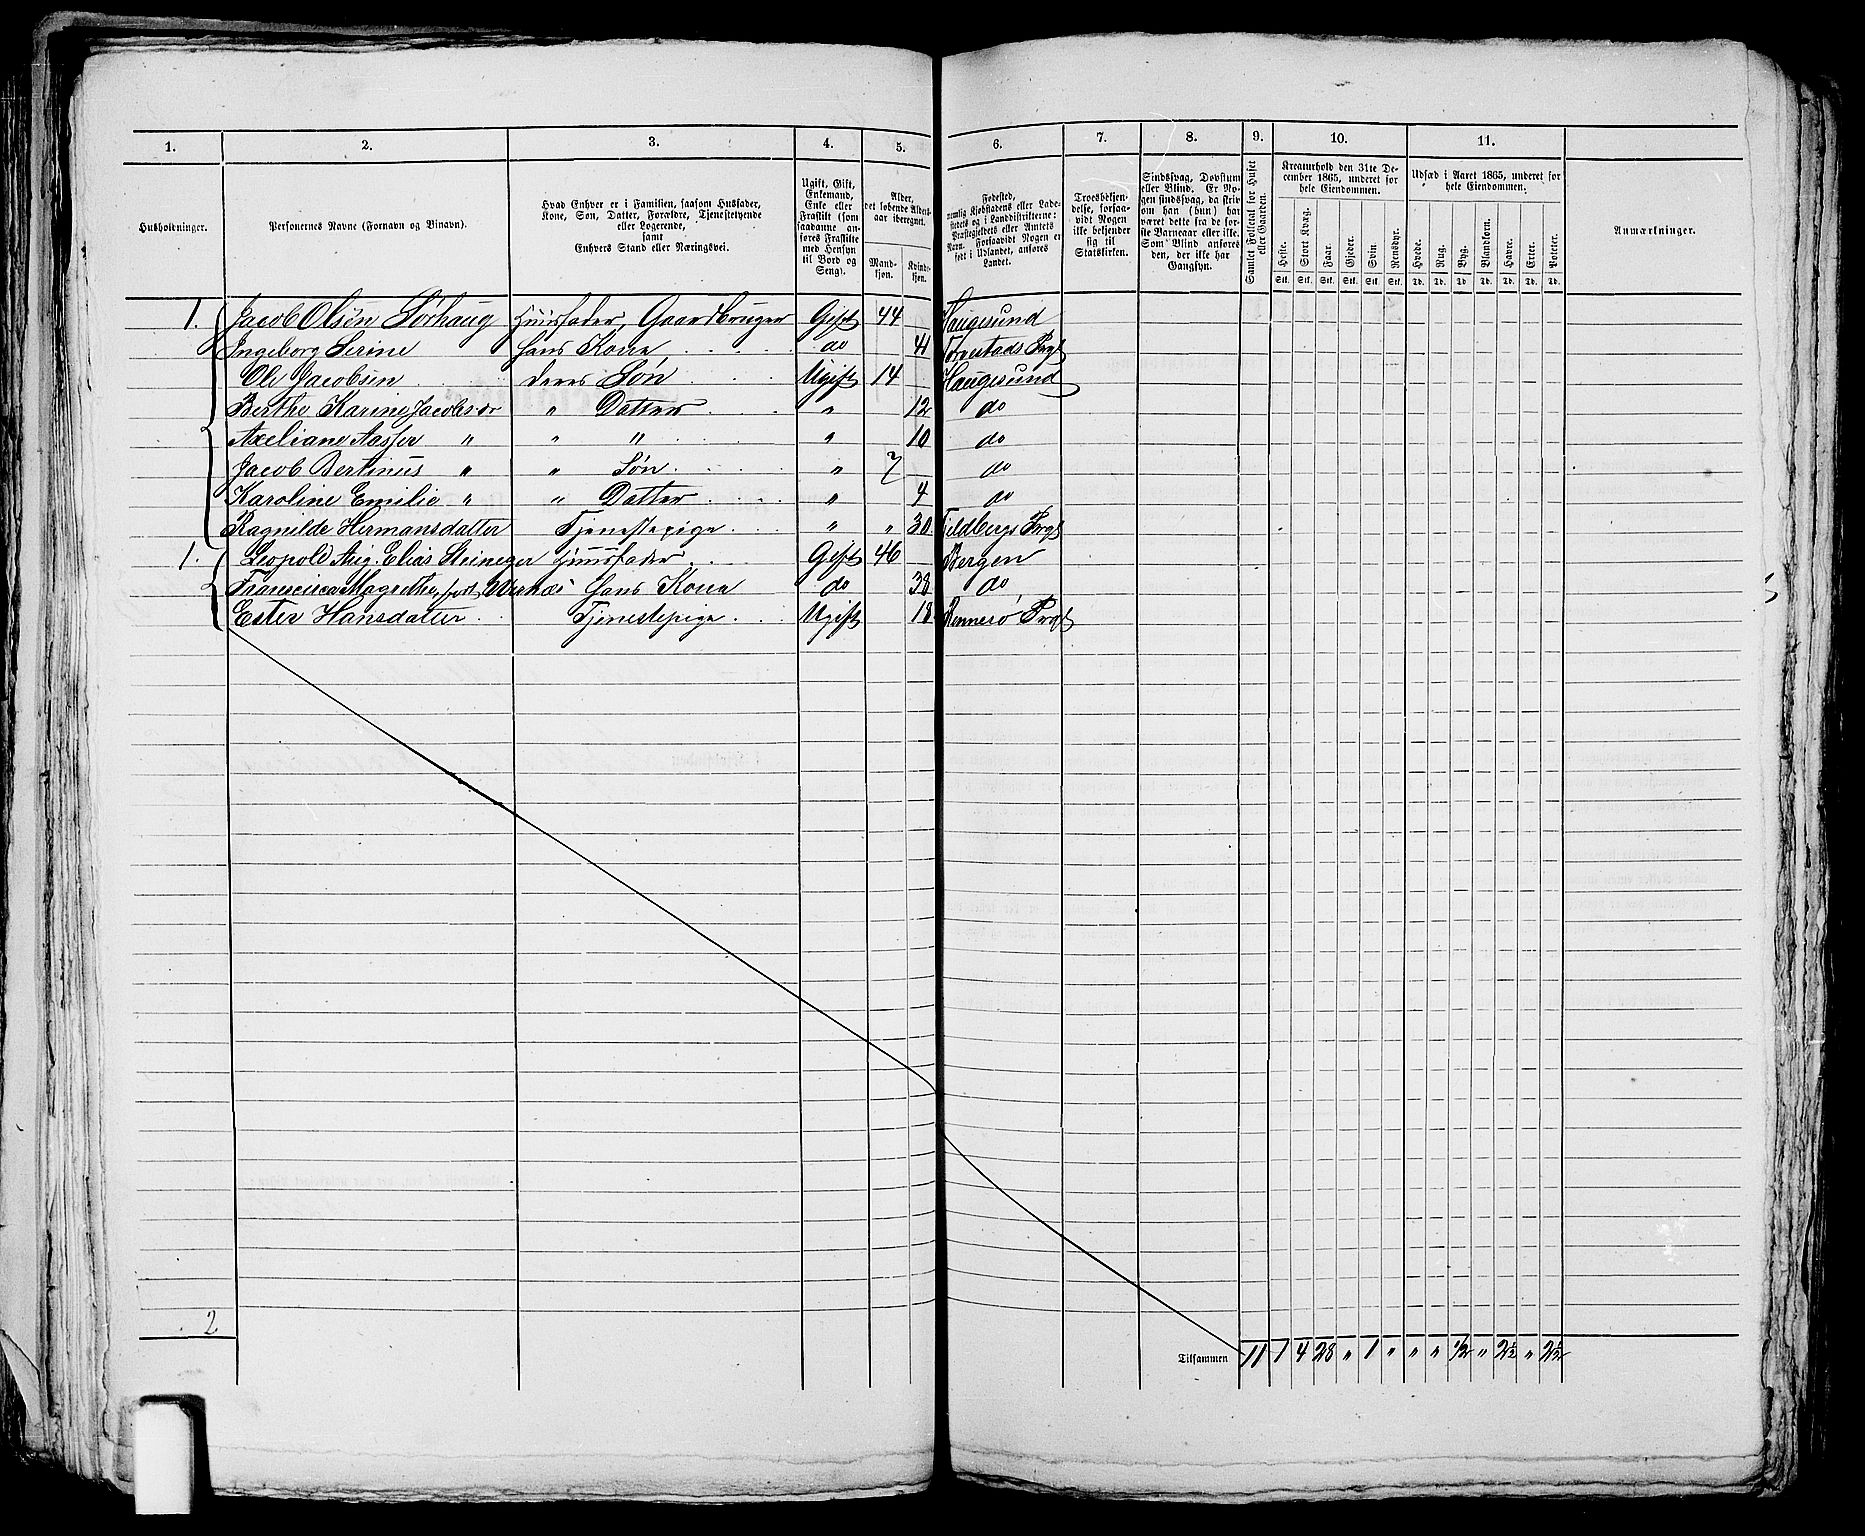 1. 2. 3. 4. 5. 6. 7. 8. 9. 10. 11.
Husholdninger.
Personernes Navne (Fornavn og Binavn).
Hvad Enhver er i Familien, saasom Husfader,
Kone, Søn, Datter, Forældre, Tjenestetyende
eller Logerende,
samt
Enhvers Stand eller Næringsvei.
Ugift, Gift,
Enkemand,
Enke eller
Fraskilt (som
saadanne an-
føres Fraskilte
med Hensyn
til Bord og
Seng).
Alder,
det løbende Alders-
aar iberegnet.
Mand-
kjøn.
Kvinde-
kjøn.
Fødested,
nemlig Kjøbstadens eller Lade-
stedets og i Landdistrikterne:
Præstegjeldets eller Amtets
Navn. Forsaavidt Nogen er
født i Udlandet, anføres
Landet.
Troesbekjen-
delse, forsaa-
vidt Nogen
ikke bekjender
sig til
Statskirken.
Sindssvag, Døvstum
eller Blind. Er No-
gen sindssvag, da skriv
om han (hun) har
været dette fra de før-
ste Barneaar eller ikke.
Som Blind anføres
den, der ikke har
Gangsyn.
Samlet Folketal for Huset
eller Gaarden.
Kreaturhold den 31te De-
cember 1865, underet for
hele Eiendommen.
Heste. Stort Kvæg. Faar. Gjeder. Svin Rensdyr.
Stk. Stk. Stk. Stk. Stk. Stk.
Udsæd i Aaret 1865, underet for
hele Eiendommen.
Hvede. Rug. Byg. Blandkorn. Havre. Erter. Poteter.
Td. Td. Td Td. Td. Td. Td.
Anmærkninger.
1. Jacob Olsen Sørhaug Huusfader, Gaardbruger Gift 44 Haugesund
Ingeborg Serine hans Kone do 41 Torvestads Prgj
Ole Jacobsen deres Søn Ugift 14 Haugesund
Berthe Karine Jacobsdr " Datter " 12 do
Axeliane " " " " 10 do
Jacob Bertinus " " Søn " 7 do
Karoline Emilie " " Datter " 4 do
Ragnilde Hermansdatter Tjenestepige " " 30 Prgj
1. Leopold Aug. Elias Steineger Huusfader Gift 46 Bergen
Francisca Magrethe født hans Kone do 38 do
Ester Hansdatter Tjenestepige Ugift 18 Rennesø Prgj
2
Tilsammen 11 1 4 28 " 1 " " " 1/2 " 2 1/2 " 2 1/2